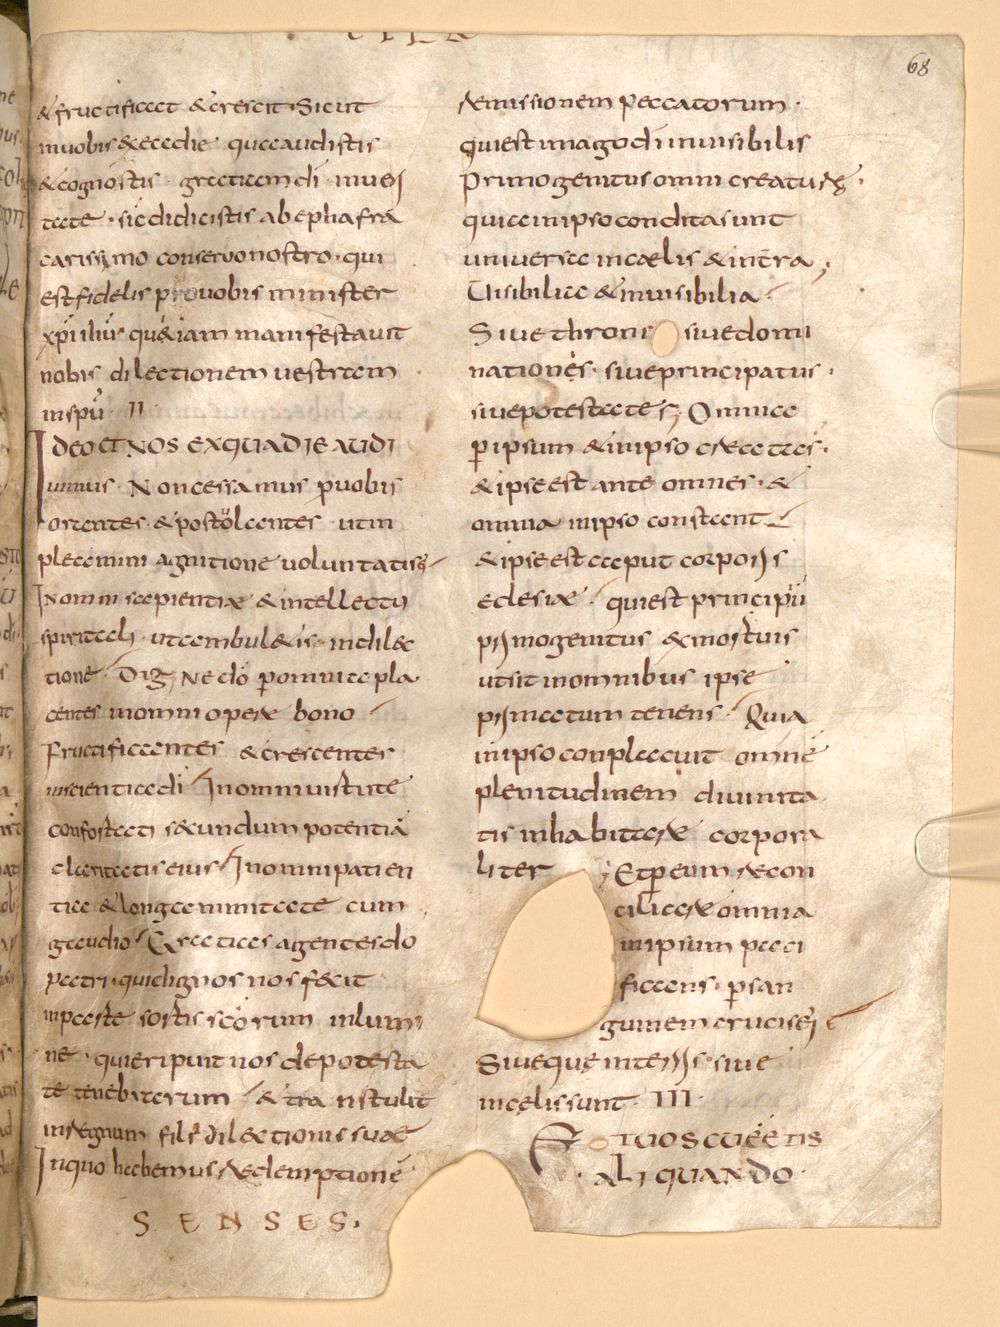 68
& fructificat & crescit. Sicut
inuobis & eadie quaaudistis
& cognostis gratiamdi inueri
tate. sic didicistis ab ephafra
carissimo conseruo nostro. qui
est fidelis pro uobis minister
xpi ihu qui & iam manifestauit
nobis dilectionem uestram
inspu. II
IDEO ET NOS EXQUA DIE AUDI
uimus Non cessamus puobis
orantes & postolantes ut in
pleamini agnitione uoluntatis
In omni sapientiae & intellectu
spiritali. ut ambuletis. in dilec
tione Dig Ne do p omnia pla
centes in omni opere bono
Fructificantes & crescentes
in scientia di In omni uirtute
confortati secundum potentia
claritatis eius In omni patien
tia & longanimitate cum
gaudio Gratias agentes do
patri. qui dignos nos fecit
in parte sortis scorum in lumi
ne. qui eripuit nos de potesta
te tenebrarum & tra nstulit
in regnum filii dilectionis suae
In quo habemus redemptione
SENSES.
remissionem peccatorum.
qui est imago di inuisibilis
Primogenitus omni creature.
quia in ipso condita sunt
uniuersa in caelis & in tra,
Uisibilia & inuisibilia
Siue throni siue domi
nationes. siue principatus.
siue potestates, Omnia
p ipsum & in ipso creata est.
& ipse est ante omnes. &
omnia in ipso constant
& ipse est caput corporis
eclesiae. qui est principiu
primogenitus ex mortuis
ut sit in omnibus ipse
primatum tenens. Quia
in ipso conplacuit omne
plenitudinem diuinita
tis inhabitare corpora
liter ; Et p eum recon
ciliare omnia
in ipsum paci
ficans. p san
guinem crucis ei
Siue que in terris. siue
in celis sunt. III.
ET UOS CUEETIS
ALIQUANDO.